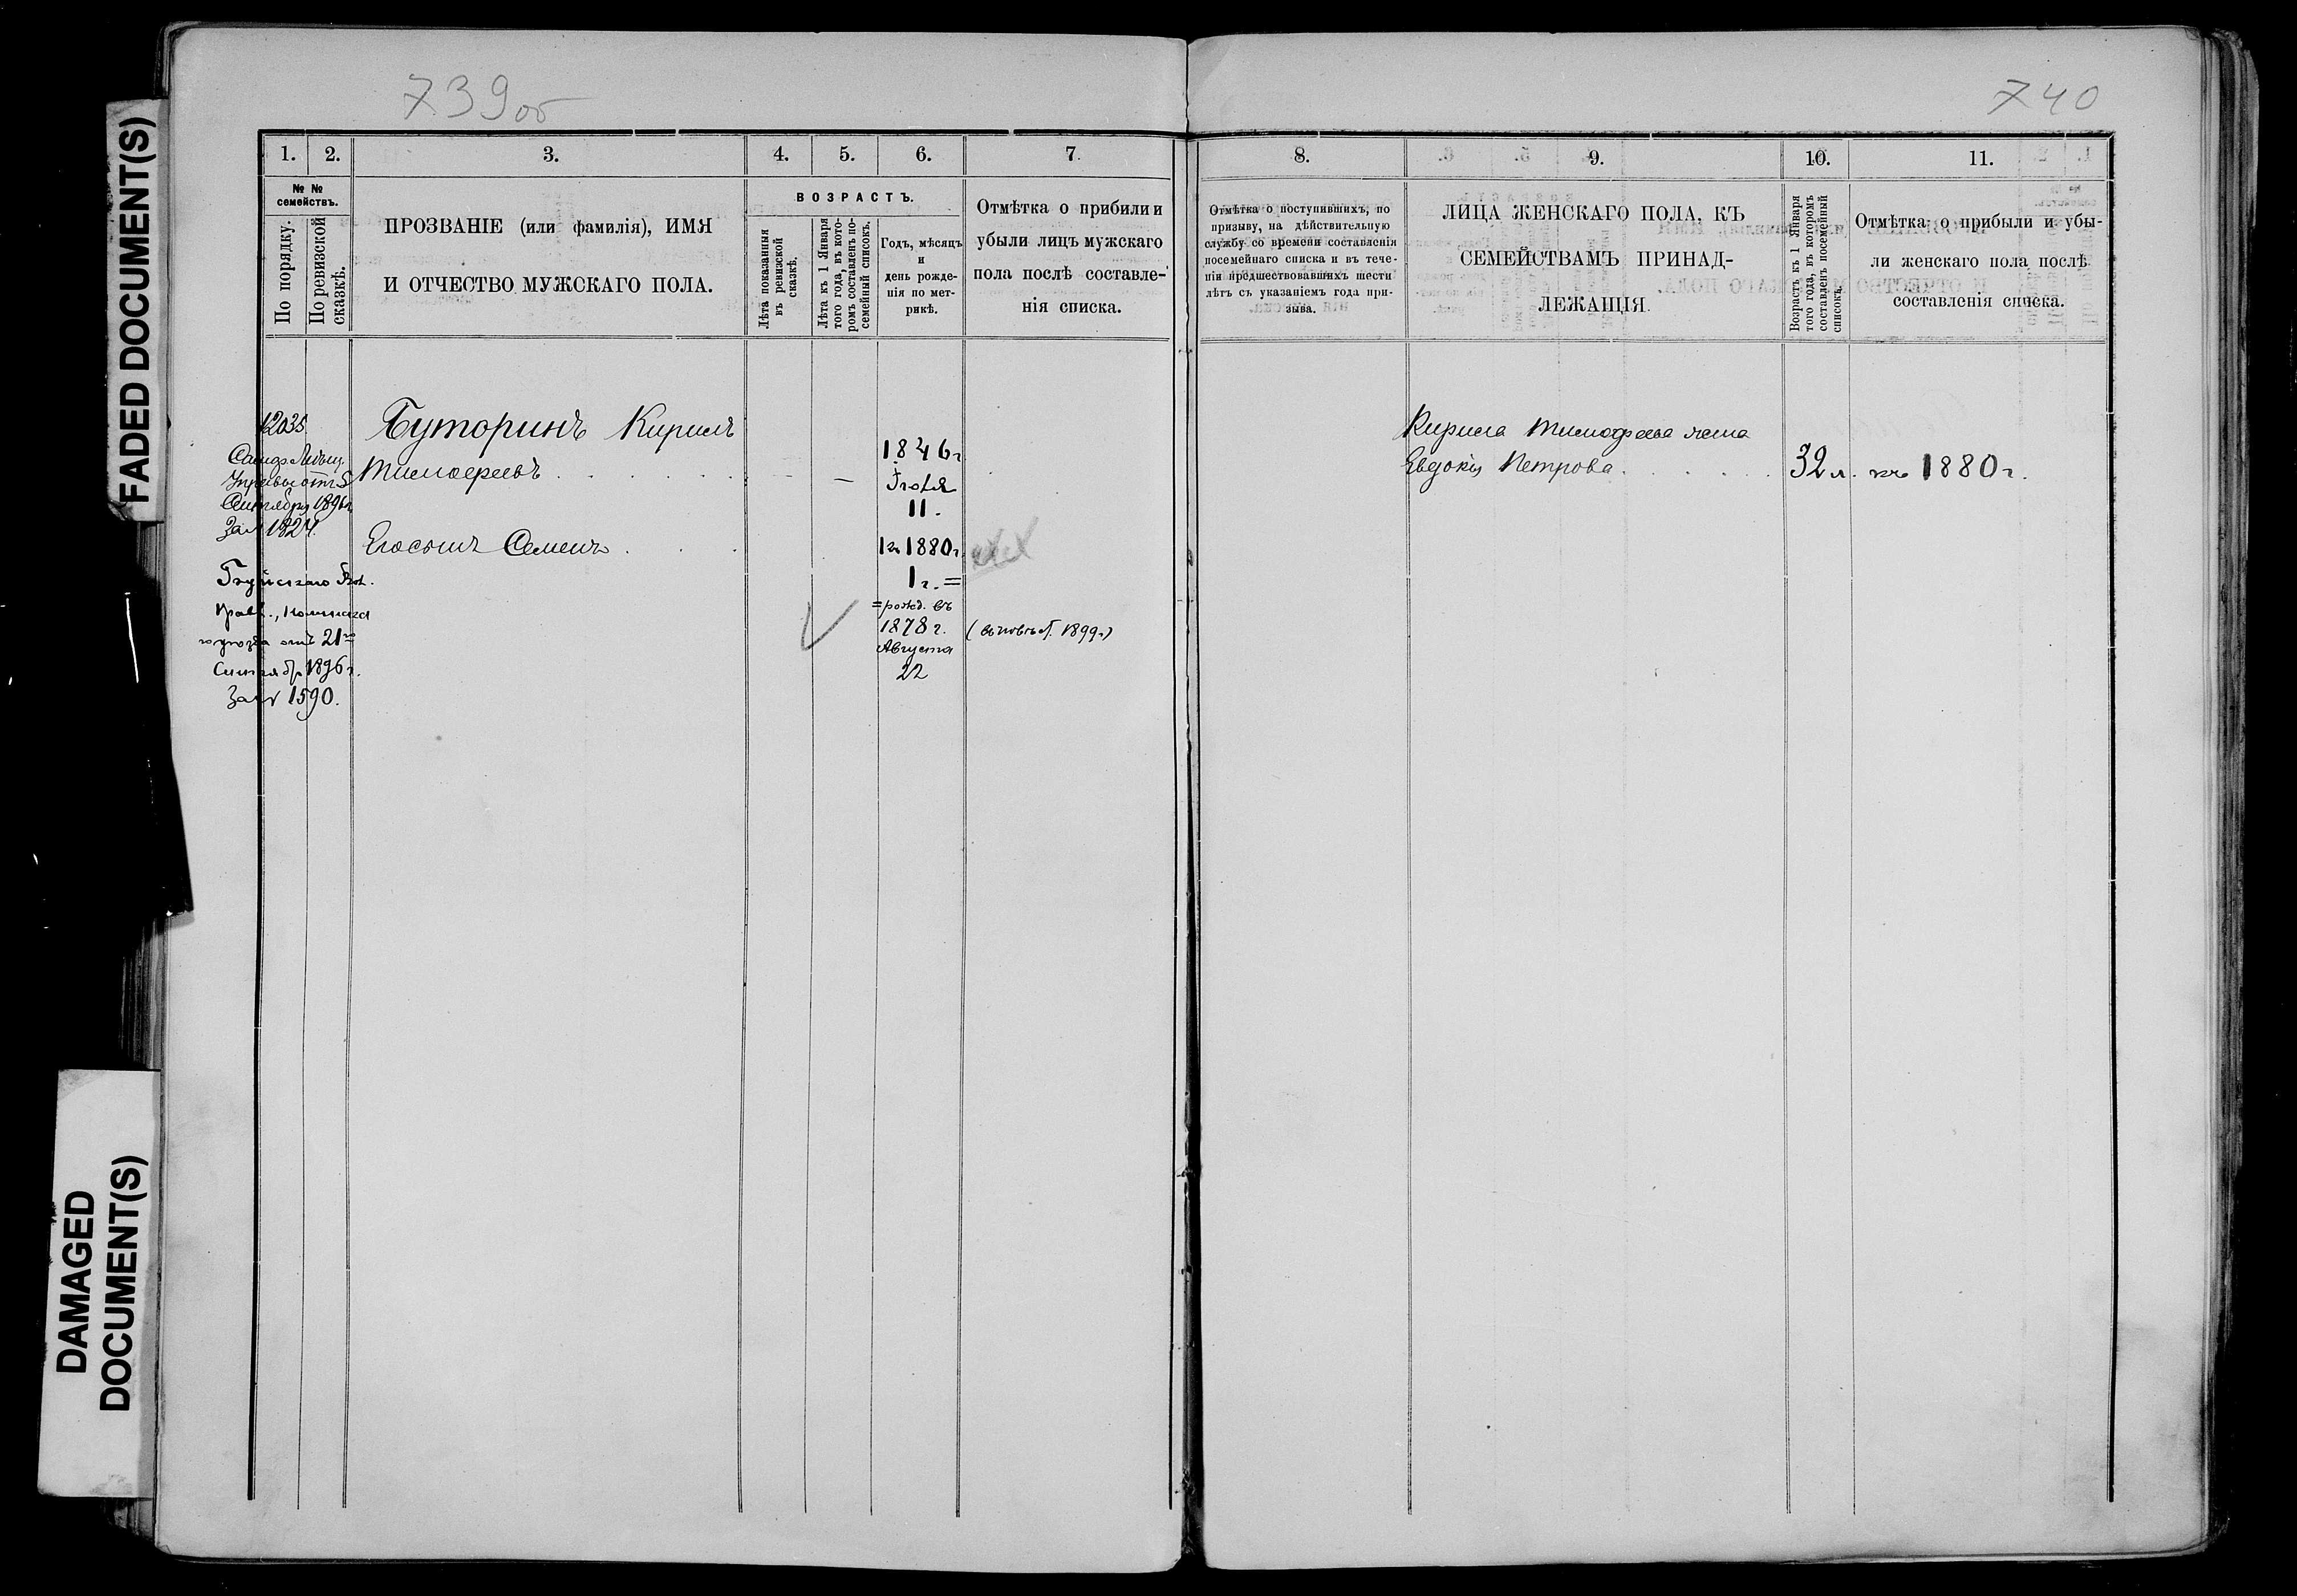 FADED DOCUMENT(S)
DAMAGED
DOCUMENT(S)
739об
1.
2.
3.
4.
5.
6.
7.
№ №
семействъ.
По порядку.
По ревизской
сказкѣ.
ПРОЗВАНІЕ (или фамилія), ИМЯ
И ОТЧЕСТВО МУЖСКАГО ПОЛА.
ВОЗРАСТЪ.
Лѣта показанныя
въ ревизской
сказкѣ.
Лѣта къ 1 Января
того года, въ кото-
ромъ составленъ по-
семейный список.
Годъ, мѣсяцъ
и
день рожде-
нія по мет-
рикѣ.
Отмѣтка о прибили и
убыли лицъ мужскаго
пола послѣ составле-
нія списка.
12035
Буторинъ Кирилъ
Тимофеевъ
1846 г
Іюля
11.
Сентября 1896 г
За № 1824.
Егосынъ Семенъ
1880 г.
1 г. =
= рожд. въ
1878 г.
Августа
22
1899 г)
отъ 21го
Сентябр 1896 г.
За № 1590.
740
8.
9.
10.
11.
Отмѣтка о поступившихъ, по
призыву, на дѣйствительную
службу со времени составленія
посемейнаго списка и въ тече-
ніи предшествовавшихъ шести
лѣтъ съ указаніемъ года при-
зыва.
ЛИЦА ЖЕНСКАГО ПОЛА, КЪ
СЕМЕЙСТВАМЪ ПРИНАД-
ЛЕЖАЩІЯ.
Возрастъ къ 1 Января
того года, въ которомъ
составленъ посемейный
списокъ.
Отмѣтка о прибыли и убы-
ли женскаго пола послѣ
составленія списка.
Кирила Тимофеева жена
Евдокія Петрова
32 л. къ 1880 г.